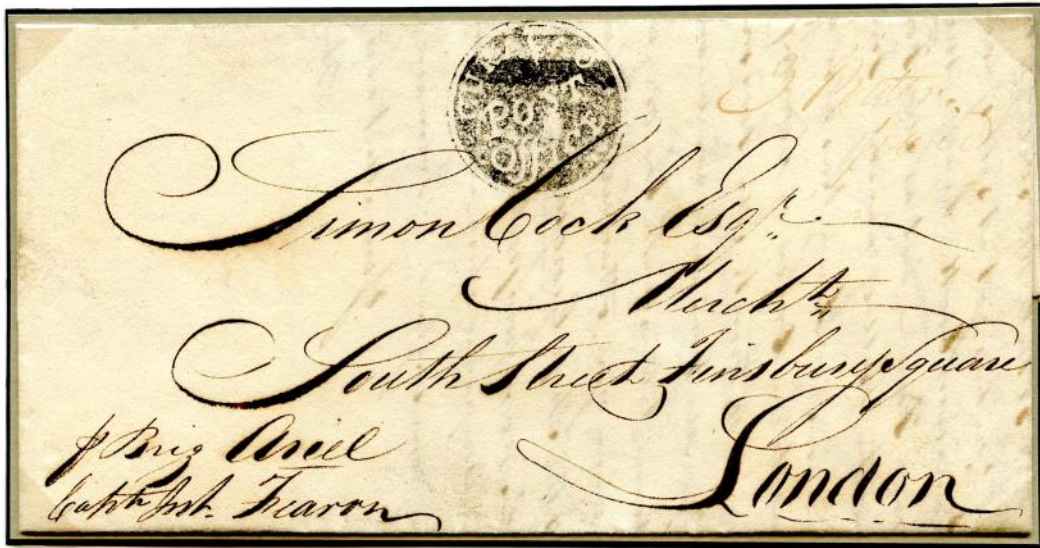 POST
Office
Simon Cock Esqr.
Mercht.
South Street Finsbury Square
London
p Brig Ariel
Captn Fearon